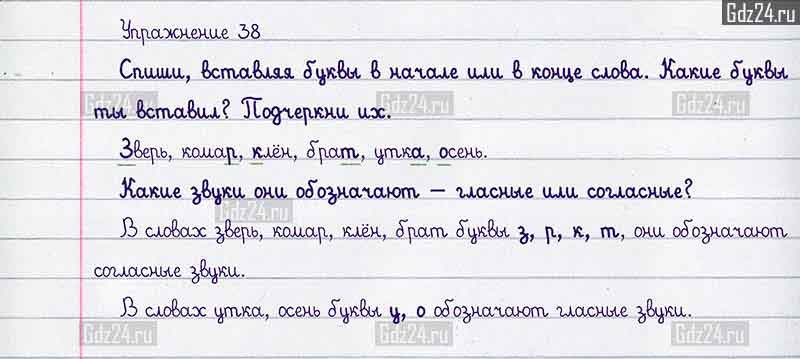 Gdz24.ru
Упражнение 38
Gdz24.ru Gdz24.ru
Спиши, вставляя буквы в начале или в конце слова. Какие буквы
Gdz24.ru Gdz24.ru Gdz24.ru
ты вставил? Подчеркни их.
Зверь, комар, клён, брат, утка, осень.
Какие звуки они обозначают — гласные или согласные?
Gdz24.ru
В словах зверь, комар, клён, брат буквы з, р, к, т, они обозначают
согласные звуки.
В словах утка, осень буквы у, о обозначают гласные звуки.
Gdz24.ru Gdz24.ru Gdz24.ru